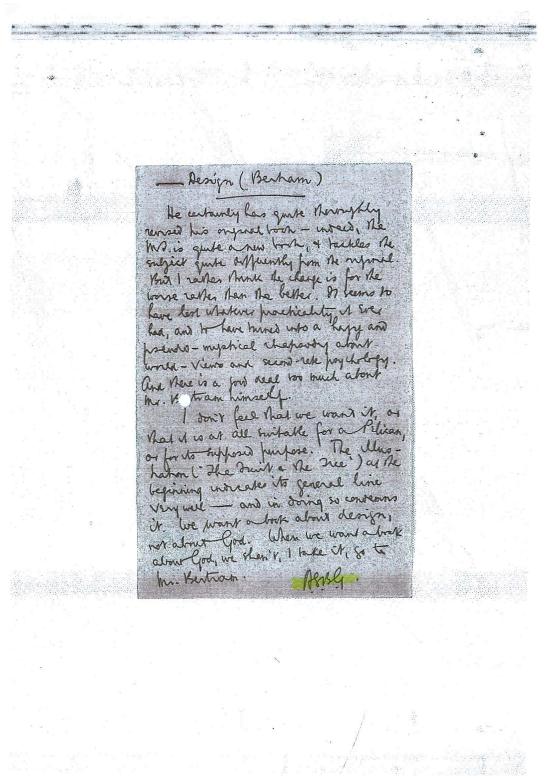 — Design (Bertram)
He certainly has quite thoroughly
revised his original book – indeed, the
MS. is quite a new book, & tackles the
subject quite differently from the original
But I rather think the change is for the
worse rather than the better. It seems to
have lost whatever practicality it ever
had, and to have turned into a hazy and
pseudo-mystical rhapsody about
world-views and second-rate psychology.
And there is a good deal too much about
Mr. Bertram himself.
I don't feel that we want it, or
that it is at all suitable for a Pelican,
or for its supposed purpose. The illus-
tration ('The Fruit & the Tree') at the
beginning indicates its general line
very well — and in doing so condemns
it. We want a book about design,
not about God. When we want a book
about God, we shan't, I take it, go to
Mr. Bertram.
ASBG.